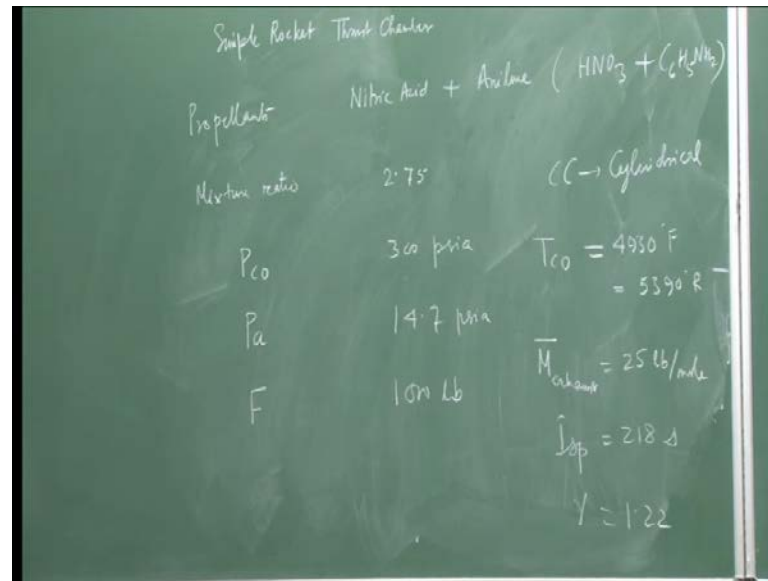 Simple Rocket Thrust Chamber
Propellants Nitric Acid + Aniline (HNO3 + C6H5NH2)
Mixture ratio 2.75 CC → Cylindrical
Pco 300 psia Tco = 4930°F
= 5390°R
Pa 14.7 psia
M̅exhaust = 25 lb/mole
F 1000 lb
Isp = 218 s
γ = 1.22